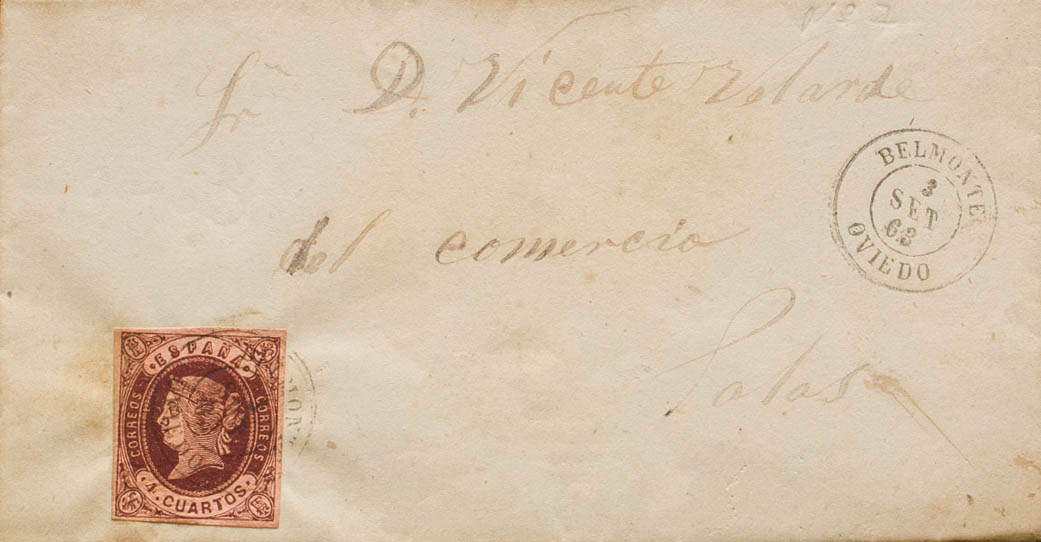 Nº 2
Sr. D. Vicente Velarde
del comercio
Salas
BELMONTE
3
SET
62
OVIEDO
ESPAÑA
CORREOS
CORREOS
4 CUARTOS